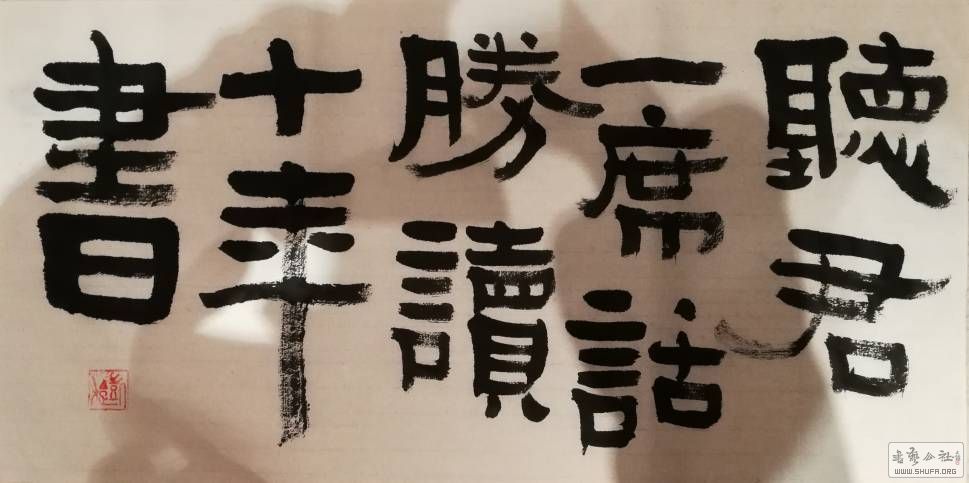 聽君
一席話
勝讀
十年
書
書藝公社
WWW.SHUFA.ORG